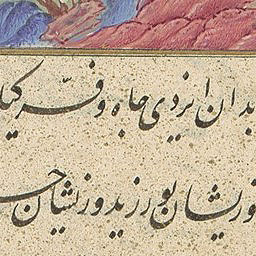 بدان ایزدی جاه و فر کیا
نور یشان بورزید وز یشان